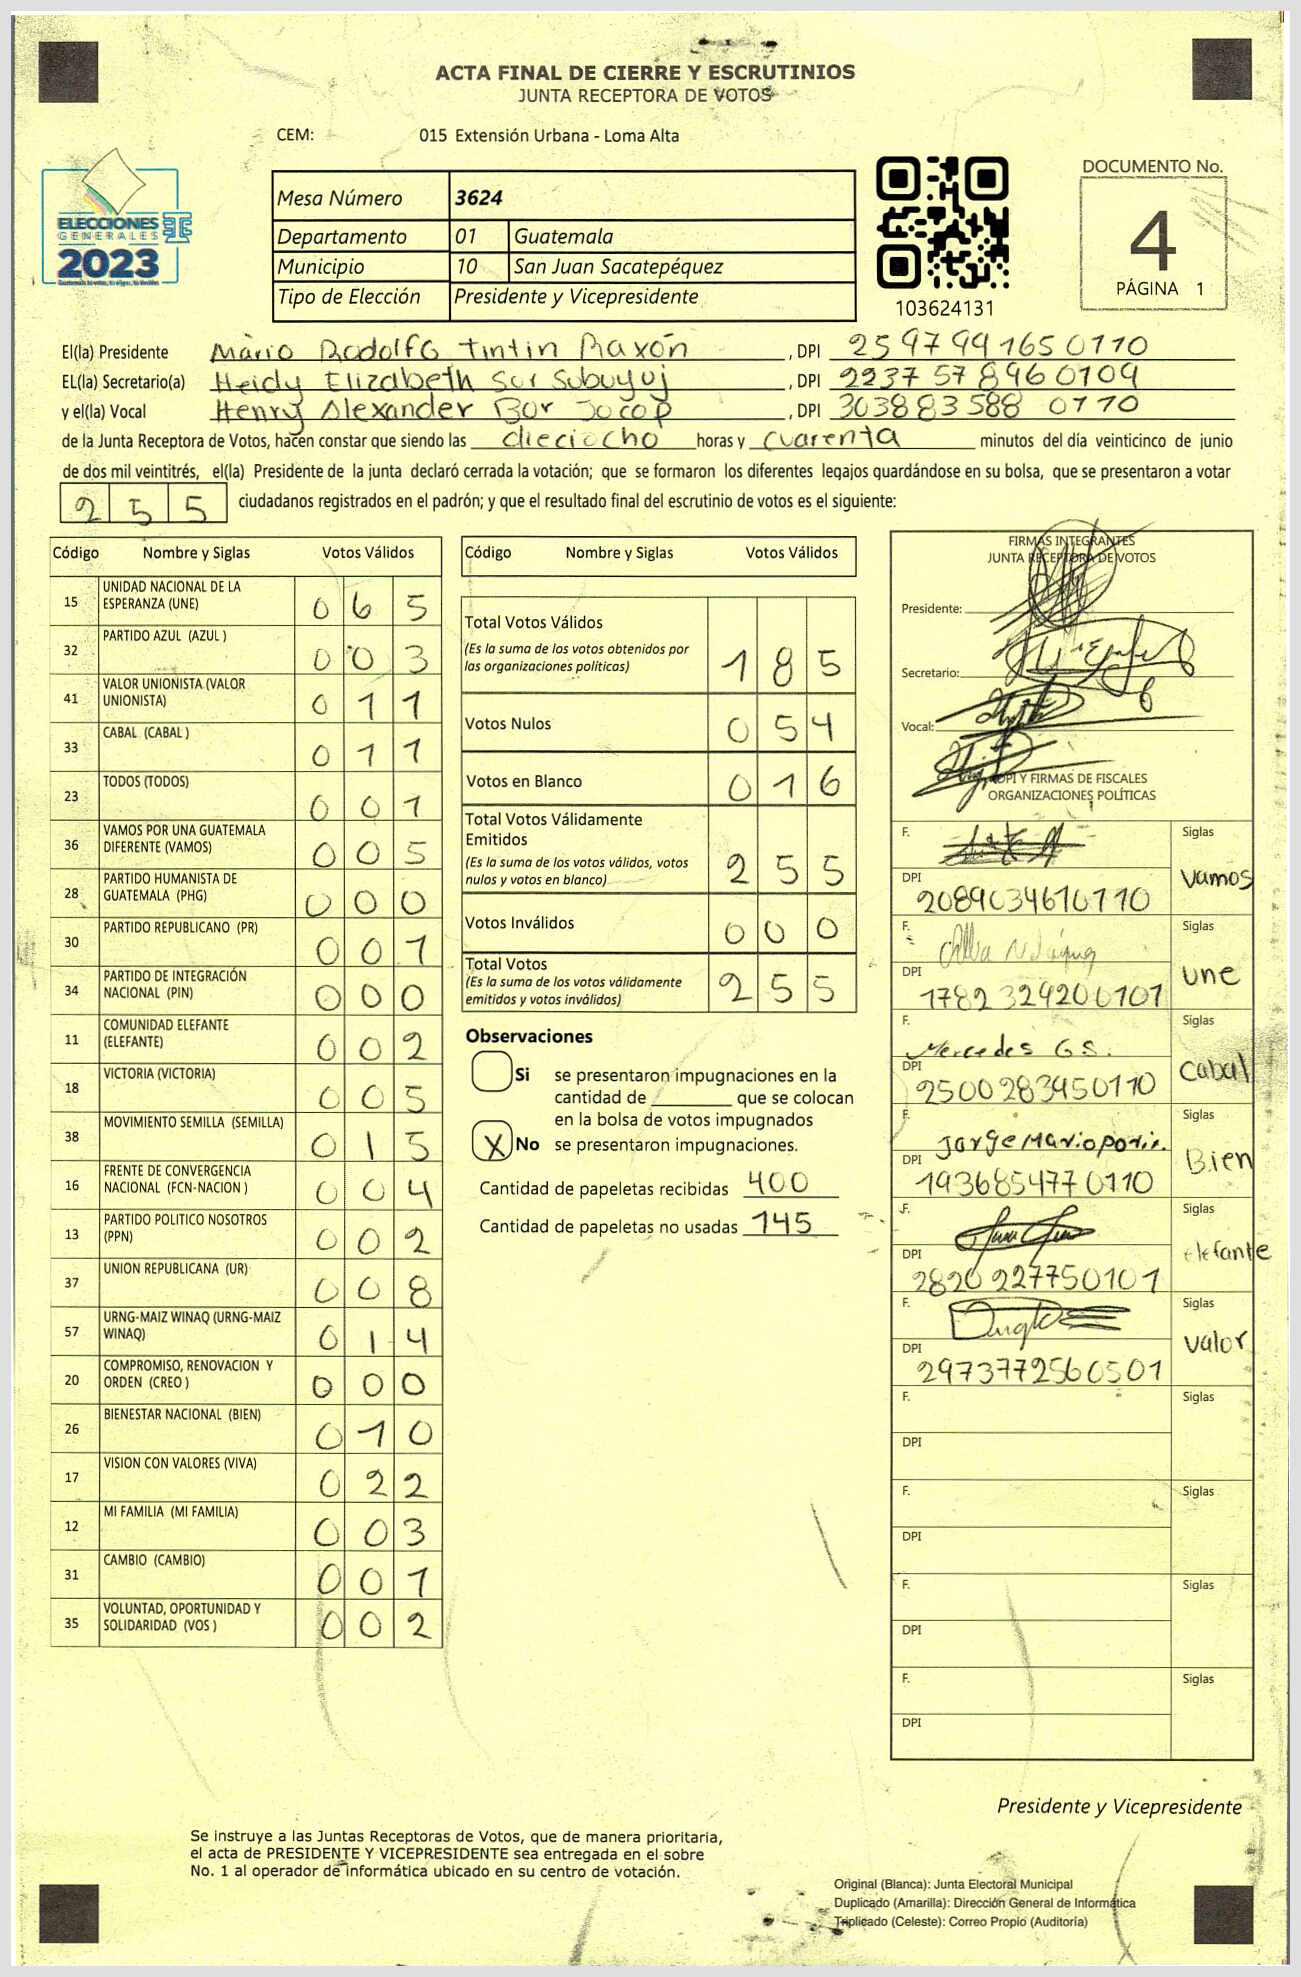 ACTA FINAL DE CIERRE Y ESCRUTINIOS
JUNTA RECEPTORA DE VOTOS
CEM: 015 Extensión Urbana - Loma Alta
ELECCIONES
GENERALES
2023
Mesa Número 3624
Departamento 01 Guatemala
Municipio 10 San Juan Sacatepéquez
Tipo de Elección Presidente y Vicepresidente
103624131
DOCUMENTO No.
4
PÁGINA 1
El(la) Presidente Mario Rodolfo Tintin Raxón, DPI 2597991650110
EL(la) Secretario(a) Heidy Elizabeth Sur Subuyuj, DPI 2237578960109
y el(la) Vocal Henry Alexander Bor Jocop, DPI 303883588 0110
de la Junta Receptora de Votos, hacen constar que siendo las dieciocho horas y cuarenta minutos del día veinticinco de junio
de dos mil veintitrés, el(la) Presidente de la junta declaró cerrada la votación; que se formaron los diferentes legajos quardándose en su bolsa, que se presentaron a votar
255 ciudadanos registrados en el padrón; y que el resultado final del escrutinio de votos es el siguiente:
Código Nombre y Siglas Votos Válidos
15 UNIDAD NACIONAL DE LA ESPERANZA (UNE) 065
32 PARTIDO AZUL (AZUL ) 003
41 VALOR UNIONISTA (VALOR UNIONISTA) 011
33 CABAL (CABAL ) 011
23 TODOS (TODOS) 001
36 VAMOS POR UNA GUATEMALA DIFERENTE (VAMOS) 005
28 PARTIDO HUMANISTA DE GUATEMALA (PHG) 000
30 PARTIDO REPUBLICANO (PR) 001
34 PARTIDO DE INTEGRACIÓN NACIONAL (PIN) 000
11 COMUNIDAD ELEFANTE (ELEFANTE) 002
18 VICTORIA (VICTORIA) 005
38 MOVIMIENTO SEMILLA (SEMILLA) 015
16 FRENTE DE CONVERGENCIA NACIONAL (FCN-NACION ) 004
13 PARTIDO POLITICO NOSOTROS (PPN) 002
37 UNION REPUBLICANA (UR) 008
57 URNG-MAIZ WINAQ (URNG-MAIZ WINAQ) 014
20 COMPROMISO, RENOVACION Y ORDEN (CREO ) 000
26 BIENESTAR NACIONAL (BIEN) 010
17 VISION CON VALORES (VIVA) 022
12 MI FAMILIA (MI FAMILIA) 003
31 CAMBIO (CAMBIO) 001
35 VOLUNTAD, OPORTUNIDAD Y SOLIDARIDAD (VOS ) 002
Código Nombre y Siglas Votos Válidos
Total Votos Válidos 185
(Es la suma de los votos obtenidos por
las organizaciones políticas)
Votos Nulos 054
Votos en Blanco 016
Total Votos Válidamente
Emitidos 255
(Es la suma de los votos válidos, votos
nulos y votos en blanco)
Votos Inválidos 000
Total Votos 255
(Es la suma de los votos válidamente
emitidos y votos inválidos)
Observaciones
Si se presentaron impugnaciones en la
cantidad de ________ que se colocan
en la bolsa de votos impugnados
X No se presentaron impugnaciones.
Cantidad de papeletas recibidas 400
Cantidad de papeletas no usadas 145
FIRMAS INTEGRANTES
JUNTA RECEPTORA DE VOTOS
Presidente:
Secretario:
Vocal:
DPI Y FIRMAS DE FISCALES
ORGANIZACIONES POLÍTICAS
F. Siglas
DPI 2089034610110 Vamos
F. Siglas
DPI 1782324200101 une
F. Mercedes G.S. Siglas
DPI 2500283450110 Cabal
F. Jorge Mario Siglas
DPI 1936854770110 Bien
F. Siglas
DPI 2820227750101 elefante
F. Siglas
DPI 2973772560501 valor
F. Siglas
DPI
F. Siglas
DPI
F. Siglas
DPI
F. Siglas
DPI
Presidente y Vicepresidente
Se instruye a las Juntas Receptoras de Votos, que de manera prioritaria,
el acta de PRESIDENTE Y VICEPRESIDENTE sea entregada en el sobre
No. 1 al operador de informática ubicado en su centro de votación.
Original (Blanca): Junta Electoral Municipal
Duplicado (Amarilla): Dirección General de Informática
Triplicado (Celeste): Correo Propio (Auditoría)